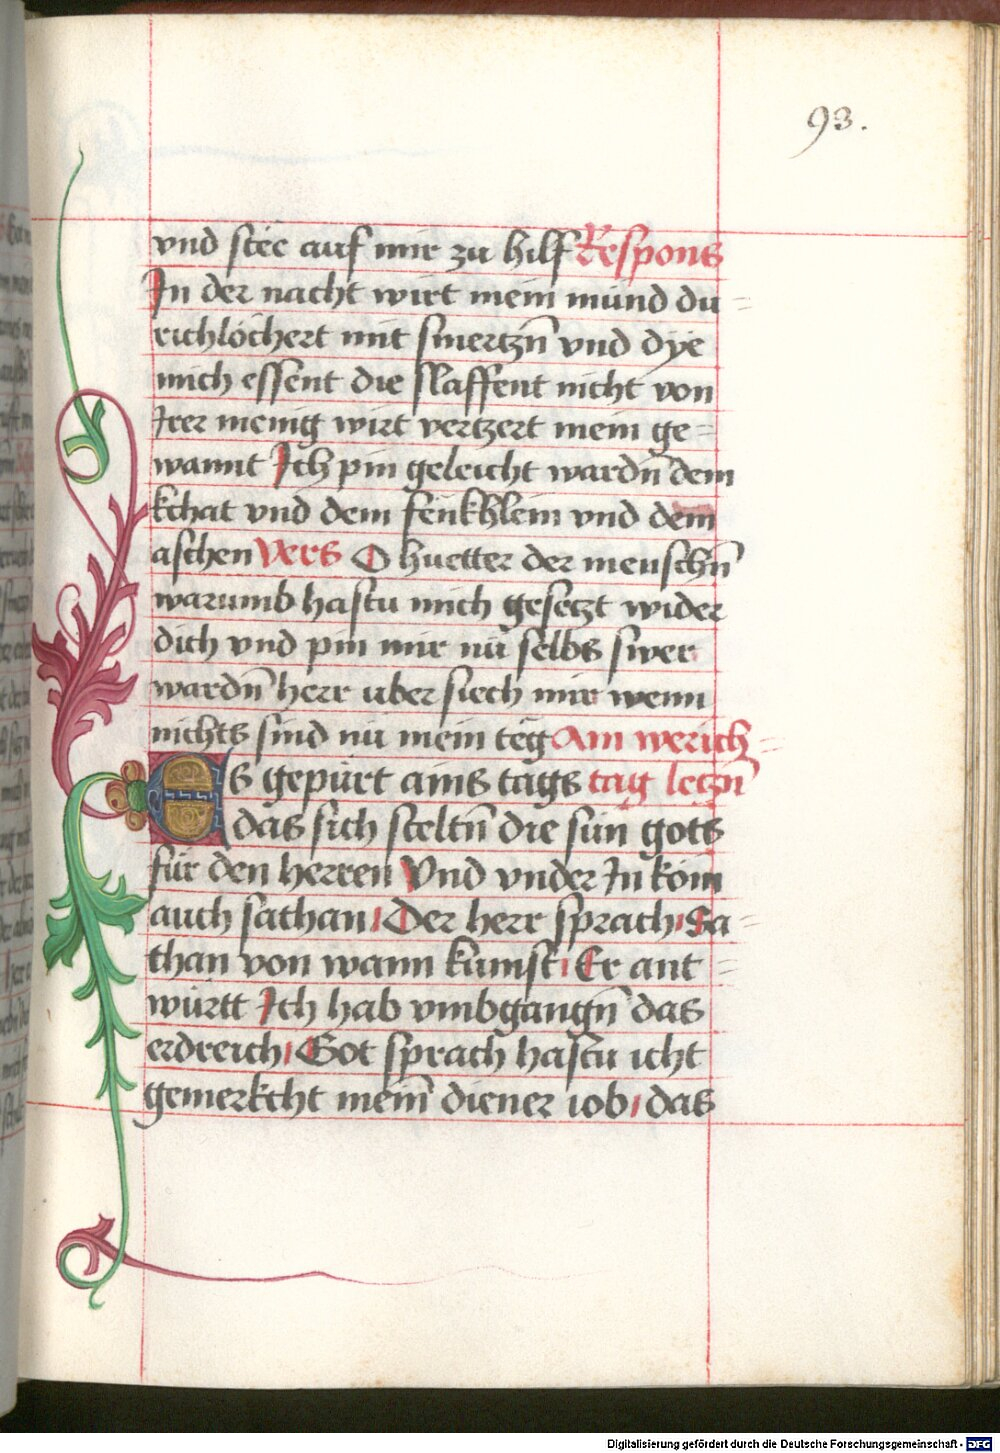 93.
vnd stee auf mir zu hilf Respons
In der nacht wirt mein mund du=
richlöchert mit smertzn̄ vnd dÿe
mich essent die slaffent nicht von
Irer menig wirt vertzert mein ge=
wannt Ich pin geleicht wardn̄ dem
kchat vnd dem fenkhlein vnd dem
aschen Vers O huetter der menschn̄
warumb hastu mich gesetzt wider
dich vnd pin mir nu selbs swer
wardn̄ herr uber siech mir wenn
nichts sind nu mein teg Am werich=
Es gepürt ains tags tag letzn̄
das sich steltn̄ die sün gots
für den herren Vnd vnder In kom
auch sathan Der herr sprach Sa=
than von wann kumst Er ant=
württ Ich hab vmbgangn̄ das
erdreich Got sprach hastu icht
gemerkcht mein̄ diener iob das
Digitalisierung gefördert durch die Deutsche Forschungsgemeinschaft - DFG